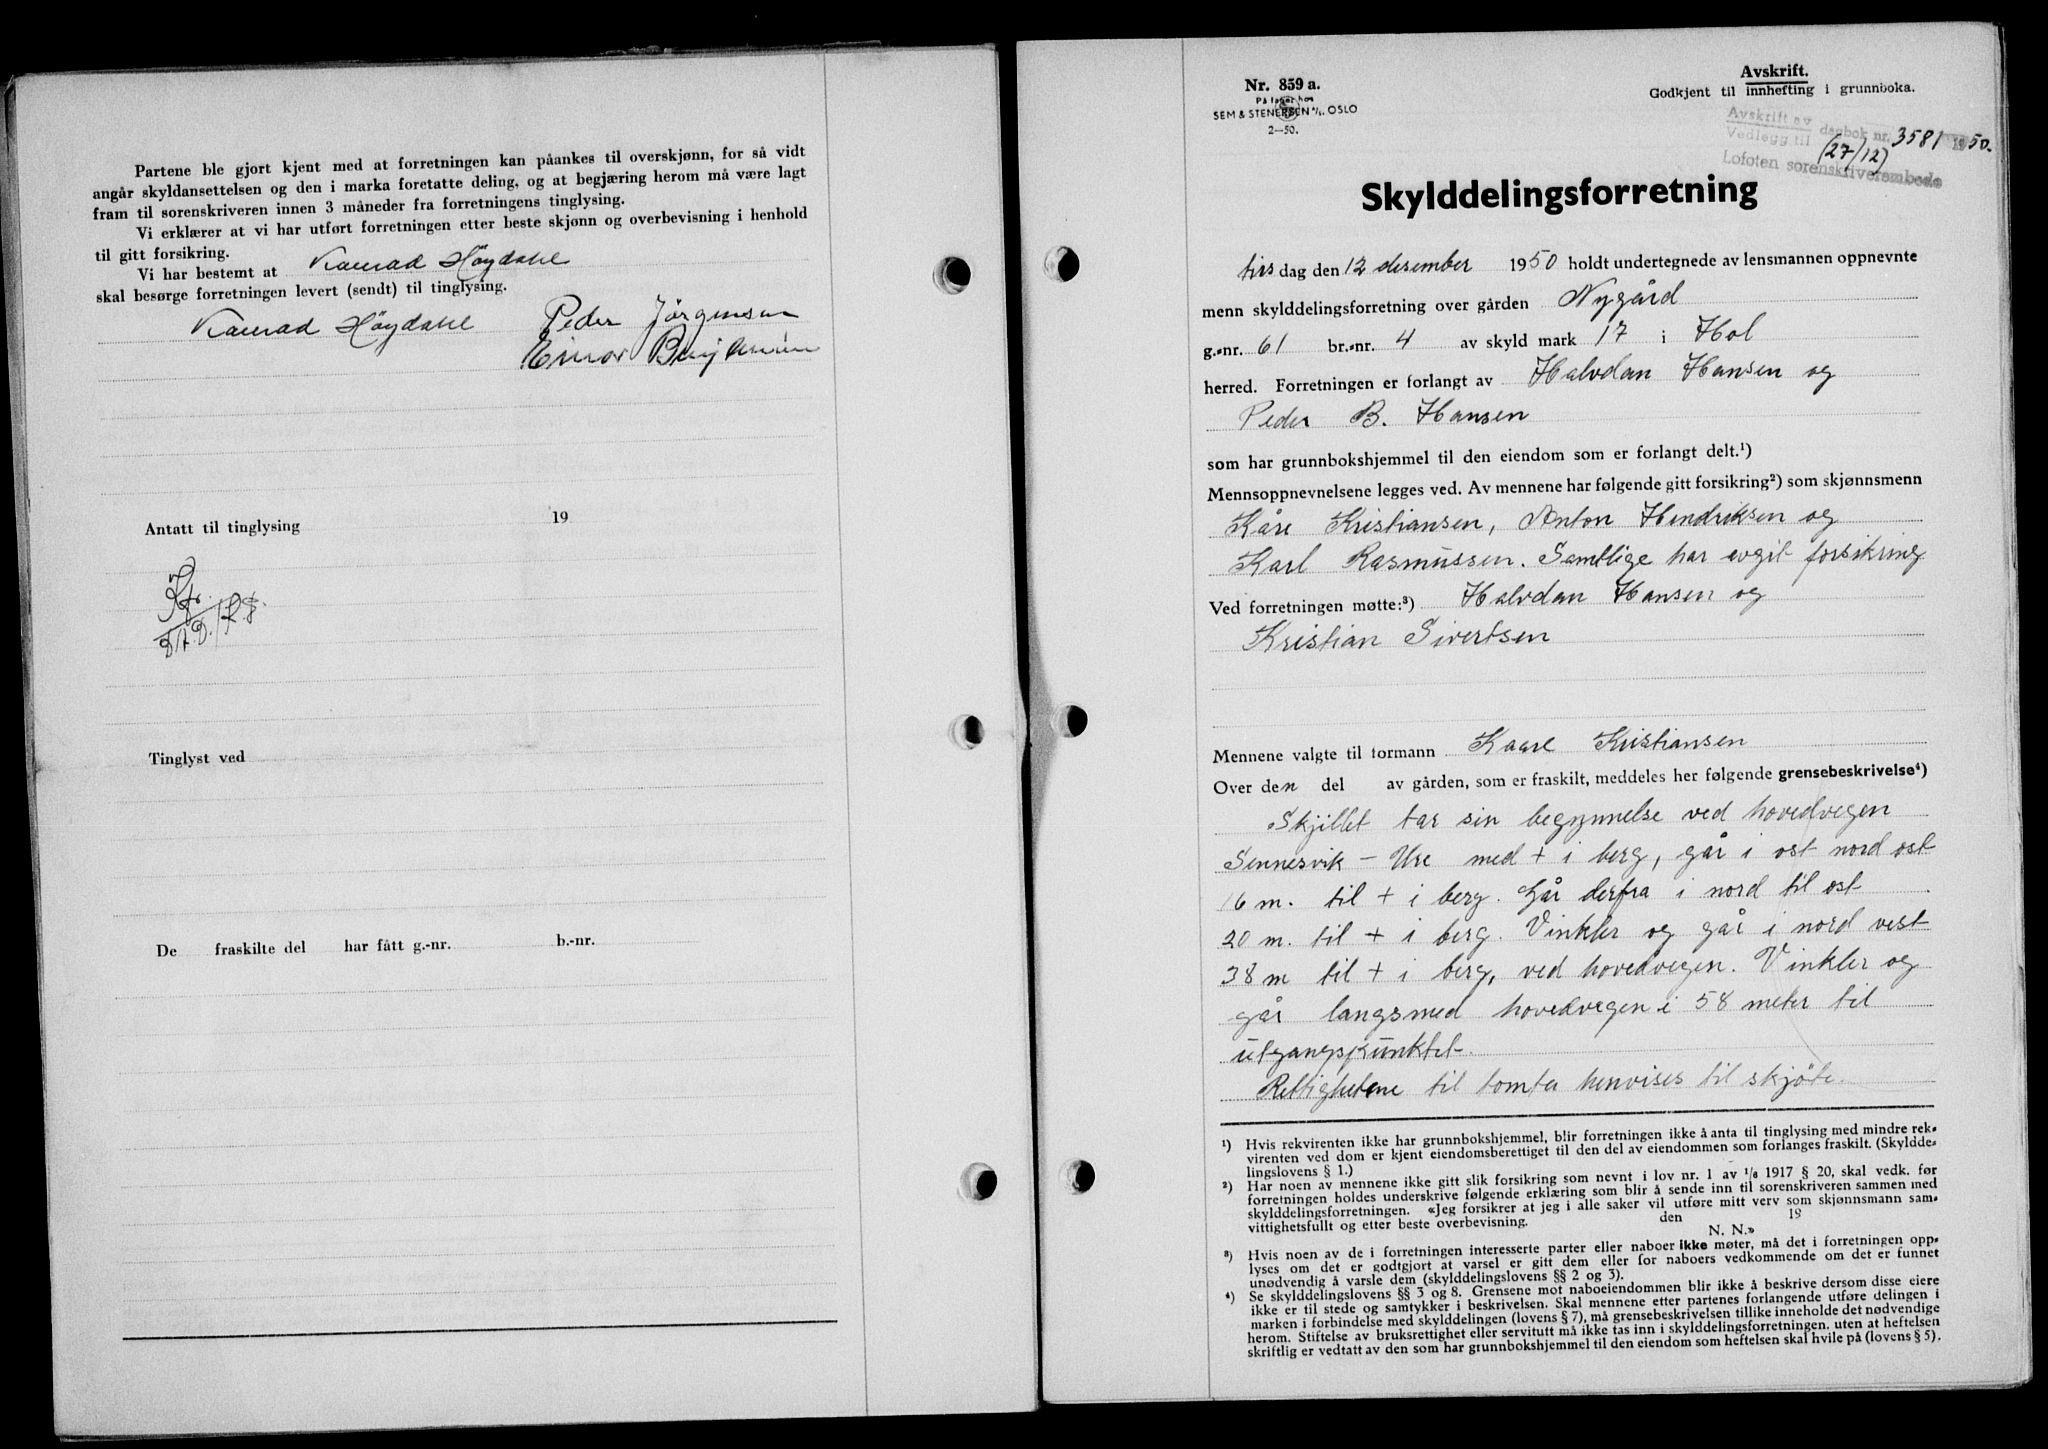 Partene ble gjort kjent med at forretningen kan påankes til overskjønn, for så vidt
angår skyldansettelsen og den i marka foretatte deling, og at begjæring herom må være lagt
fram til sorenskriveren innen 3 måneder fra forretningens tinglysing.
Vi erklærer at vi har utført forretningen etter beste skjønn og overbevisning i henhold
til gitt forsikring.
Vi har bestemt at Konrad Høydahl
skal besørge forretningen levert (sendt) til tinglysing.
Konrad Høydahl Peder Jørgensen
Einar Benjaminsen
Antatt til tinglysing 19
Tinglyst ved
De fraskilte del har fått g.-nr. b.-nr.
Nr. 859 a.
På lager hos
SEM & STENERSEN A/S, OSLO
2—50.
Avskrift.
Godkjent til innhefting i grunnboka.
Avskrift av
Vedlegg til dagbok nr. 3581 1950.
(27/12)
Lofoten sorenskriverembede
Skylddelingsforretning
tirsdag den 12 desember 1950 holdt undertegnede av lensmannen oppnevnte
menn skylddelingsforretning over gården Nygård
g.-nr. 61 br.-nr. 4 av skyld mark 17 i Hol
herred. Forretningen er forlangt av Halvdan Hansen og
Peder B. Hansen
som har grunnbokshjemmel til den eiendom som er forlangt delt.¹)
Mennsoppnevnelsene legges ved. Av mennene har følgende gitt forsikring²) som skjønnsmenn
Kåre Kristiansen, Anton Hendriksen og
Karl Rasmussen. Samtlige har avgit forsikring
Ved forretningen møtte:³) Halvdan Hansen og
Kristian Sivertsen
Mennene valgte til formann Kaare Kristiansen
Over den del av gården, som er fraskilt, meddeles her følgende grensebeskrivelse⁴)
Skjillet tar sin begynnelse ved hovedvegen
Sennesvik - Ure med + i berg, går i ost nord ost
16 m. til + i berg. Går derfra i nord til ost
20 m. til + i berg. Vinkler og går i nord vest
38 m til + i berg, ved hovedvegen. Vinkler og
går langsmed hovedvegen i 58 meter til
utgangspunktet.
Rettighetene til tomta henvises til skjøte.
¹) Hvis rekvirenten ikke har grunnbokshjemmel, blir forretningen ikke å anta til tinglysing med mindre rek-
virenten ved dom er kjent eiendomsberettiget til den del av eiendommen som forlanges fraskilt. (Skyldde-
lingslovens § 1.)
²) Har noen av mennene ikke gitt slik forsikring som nevnt i lov nr. 1 av 1/6 1917 § 20, skal vedk. før
forretningen holdes underskrive følgende erklæring som blir å sende inn til sorenskriveren sammen med
skylddelingsforretningen. «Jeg forsikrer at jeg i alle saker vil utføre mitt verv som skjønnsmann sam-
vittighetsfullt og etter beste overbevisning. den 19
N. N.»
³) Hvis noen av de i forretningen interesserte parter eller naboer ikke møter, må det i forretningen opp-
lyses om det er godtgjort at varsel er gitt dem eller for naboers vedkommende om det er funnet
unødvendig å varsle dem (skylddelingslovens §§ 2 og 3).
⁴) Se skylddelingslovens §§ 3 og 8. Grensene mot naboeiendommen blir ikke å beskrive dersom disse eiere
ikke er til stede og samtykker i beskrivelsen. Skal mennene etter partenes forlangende utføre delingen i
marken i forbindelse med skylddelingen (lovens § 7), må grensebeskrivelsen tillike inneholde det nødvendige
herom. Stiftelse av bruksrettighet eller servitutt må ikke tas inn i skylddelingsforretningen, uten at heftelsen
skriftlig er vedtatt av den som har grunnbokshjemmel til den eiendom som heftelsen skal hvile på (lovens § 5).